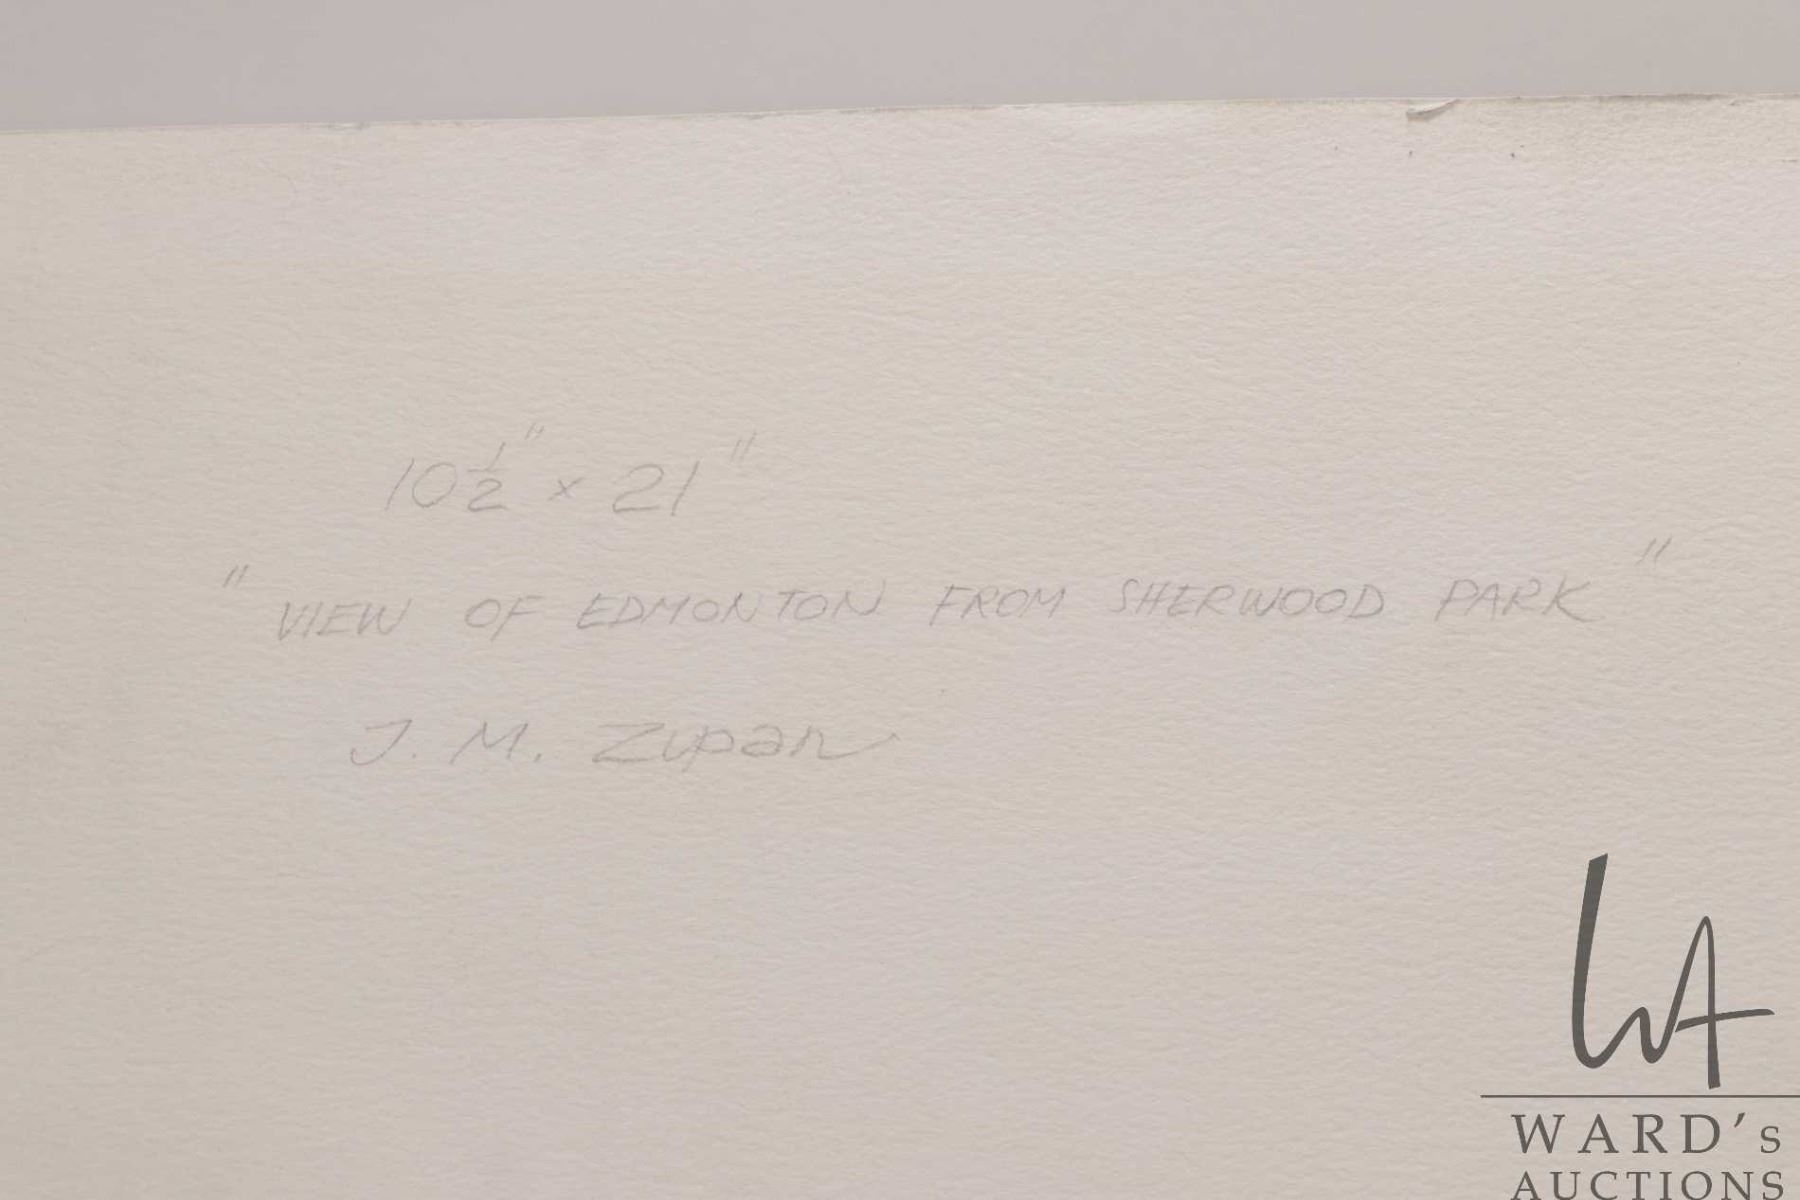 10 1/2" x 21"
"VIEW OF EDMONTON FROM SHERWOOD PARK"
J. M. Zupan
WA
WARD's
AUCTIONS